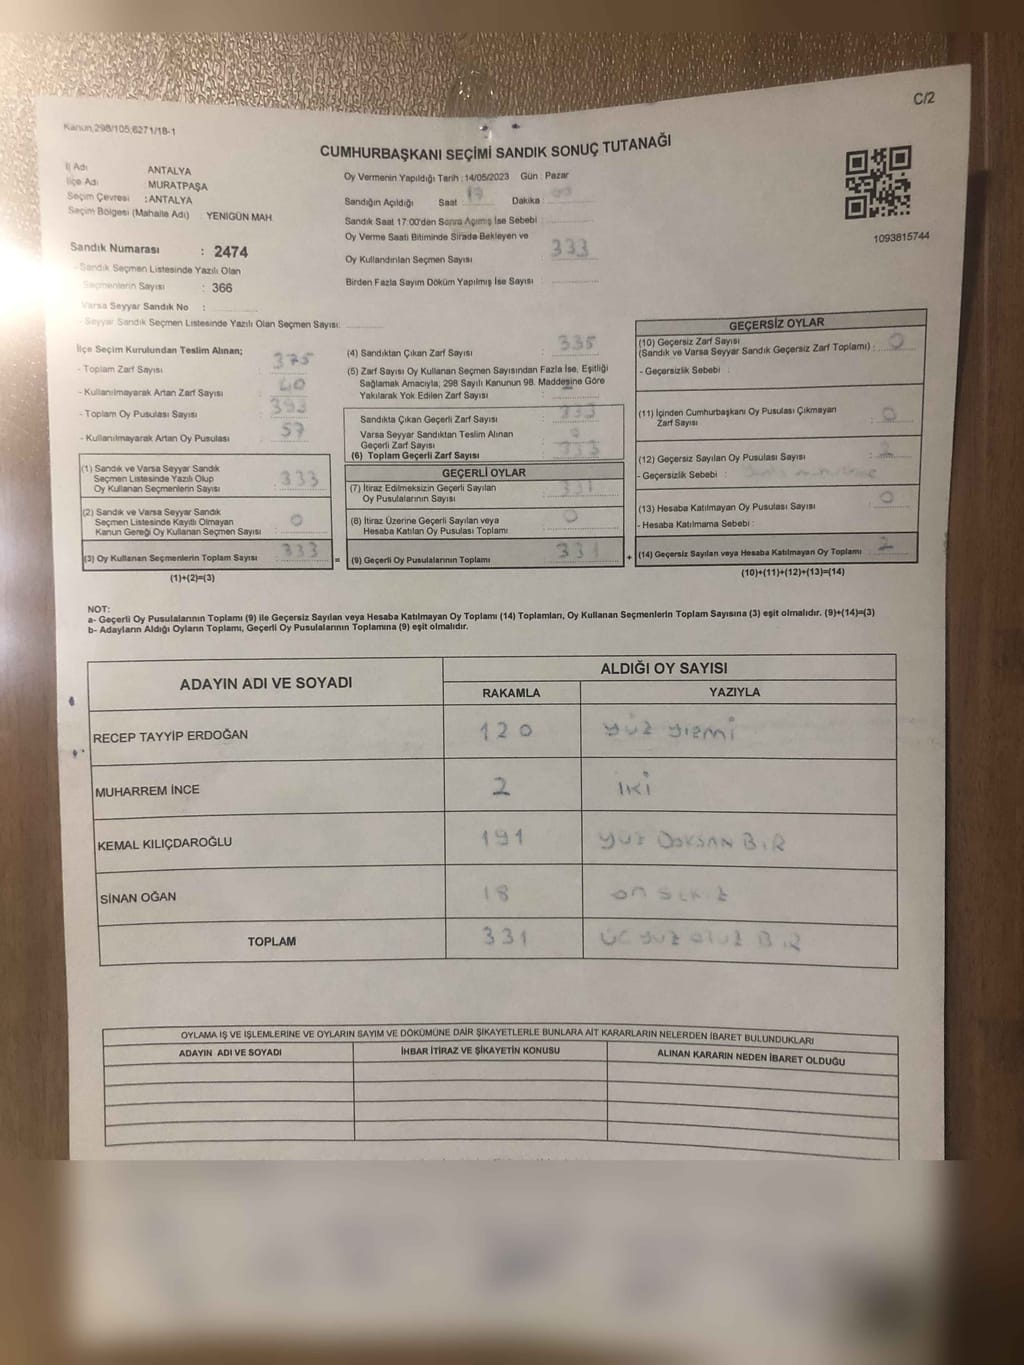 C/2
Kanun,298/105,6271/18-1
CUMHURBAŞKANI SEÇİMİ SANDIK SONUÇ TUTANAĞI
İl Adı ANTALYA
İlçe Adı : MURATPAŞA
Seçim Çevresi : ANTALYA
Seçim Bölgesi (Mahalle Adı) : YENİGÜN MAH.
Sandık Numarası : 2474
- Sandık Seçmen Listesinde Yazılı Olan
Seçmenlerin Sayısı : 366
Varsa Seyyar Sandık No :
- Seyyar Sandık Seçmen Listesinde Yazılı Olan Seçmen Sayısı:
Oy Vermenin Yapıldığı Tarih :14/05/2023 Gün : Pazar
Sandığın Açıldığı Saat : Dakika :
Sandık Saat 17:00'den Sonra Açımış İse Sebebi :
Oy Verme Saati Bitiminde Sırada Bekleyen ve
Oy Kullandırılan Seçmen Sayısı : 333
Birden Fazla Sayım Döküm Yapılmış İse Sayısı :
1093815744
İlçe Seçim Kurulundan Teslim Alınan;
- Toplam Zarf Sayısı : 375
- Kullanılmayarak Artan Zarf Sayısı : 40
- Toplam Oy Pusulası Sayısı : 393
- Kullanılmayarak Artan Oy Pusulası : 57
(1) Sandık ve Varsa Seyyar Sandık
Seçmen Listesinde Yazılı Olup
Oy Kullanan Seçmenlerin Sayısı : 333
(2) Sandık ve Varsa Seyyar Sandık
Seçmen Listesinde Kayıtlı Olmayan
Kanun Gereği Oy Kullanan Seçmen Sayısı : 0
(3) Oy Kullanan Seçmenlerin Toplam Sayısı : 333
(1)+(2)=(3)
(4) Sandıktan Çıkan Zarf Sayısı : 335
(5) Zarf Sayısı Oy Kullanan Seçmen Sayısından Fazla İse, Eşitliği
Sağlamak Amacıyla; 298 Sayılı Kanunun 98. Maddesine Göre
Yakılarak Yok Edilen Zarf Sayısı :
Sandıkta Çıkan Geçerli Zarf Sayısı : 333
Varsa Seyyar Sandıktan Teslim Alınan
Geçerli Zarf Sayısı : 0
(6) Toplam Geçerli Zarf Sayısı : 333
GEÇERLİ OYLAR
(7) İtiraz Edilmeksizin Geçerli Sayılan
Oy Pusulalarının Sayısı : 331
(8) İtiraz Üzerine Geçerli Sayılan veya
Hesaba Katılan Oy Pusulası Toplamı : 0
= (9) Geçerli Oy Pusulalarının Toplamı : 331
GEÇERSİZ OYLAR
(10) Geçersiz Zarf Sayısı
(Sandık ve Varsa Seyyar Sandık Geçersiz Zarf Toplamı) : 0
- Geçersizlik Sebebi :
(11) İçinden Cumhurbaşkanı Oy Pusulası Çıkmayan
Zarf Sayısı : 0
(12) Geçersiz Sayılan Oy Pusulası Sayısı : 2
- Geçersizlik Sebebi :
(13) Hesaba Katılmayan Oy Pusulası Sayısı : 0
- Hesaba Katılmama Sebebi :
+ (14) Geçersiz Sayılan veya Hesaba Katılmayan Oy Toplamı : 2
(10)+(11)+(12)+(13)=(14)
NOT:
a- Geçerli Oy Pusulalarının Toplamı (9) ile Geçersiz Sayılan veya Hesaba Katılmayan Oy Toplamı (14) Toplamları, Oy Kullanan Seçmenlerin Toplam Sayısına (3) eşit olmalıdır. (9)+(14)=(3)
b- Adayların Aldığı Oyların Toplamı, Geçerli Oy Pusulalarının Toplamına (9) eşit olmalıdır.
ADAYIN ADI VE SOYADI ALDIĞI OY SAYISI
RAKAMLA YAZIYLA
RECEP TAYYİP ERDOĞAN 120 YÜZ YİRMİ
MUHARREM İNCE 2 İKİ
KEMAL KILIÇDAROĞLU 191 YÜZ DOKSAN BİR
SİNAN OĞAN 18 ON SEKİZ
TOPLAM 331 ÜÇ YÜZ OTUZ BİR
OYLAMA İŞ VE İŞLEMLERİNE VE OYLARIN SAYIM VE DÖKÜMÜNE DAİR ŞİKAYETLERLE BUNLARA AİT KARARLARIN NELERDEN İBARET BULUNDUKLARI
ADAYIN ADI VE SOYADI İHBAR İTİRAZ VE ŞİKAYETİN KONUSU ALINAN KARARIN NEDEN İBARET OLDUĞU